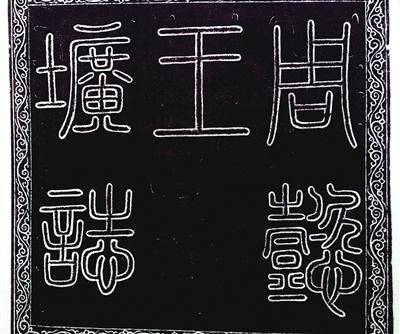 周懿
王
壙誌